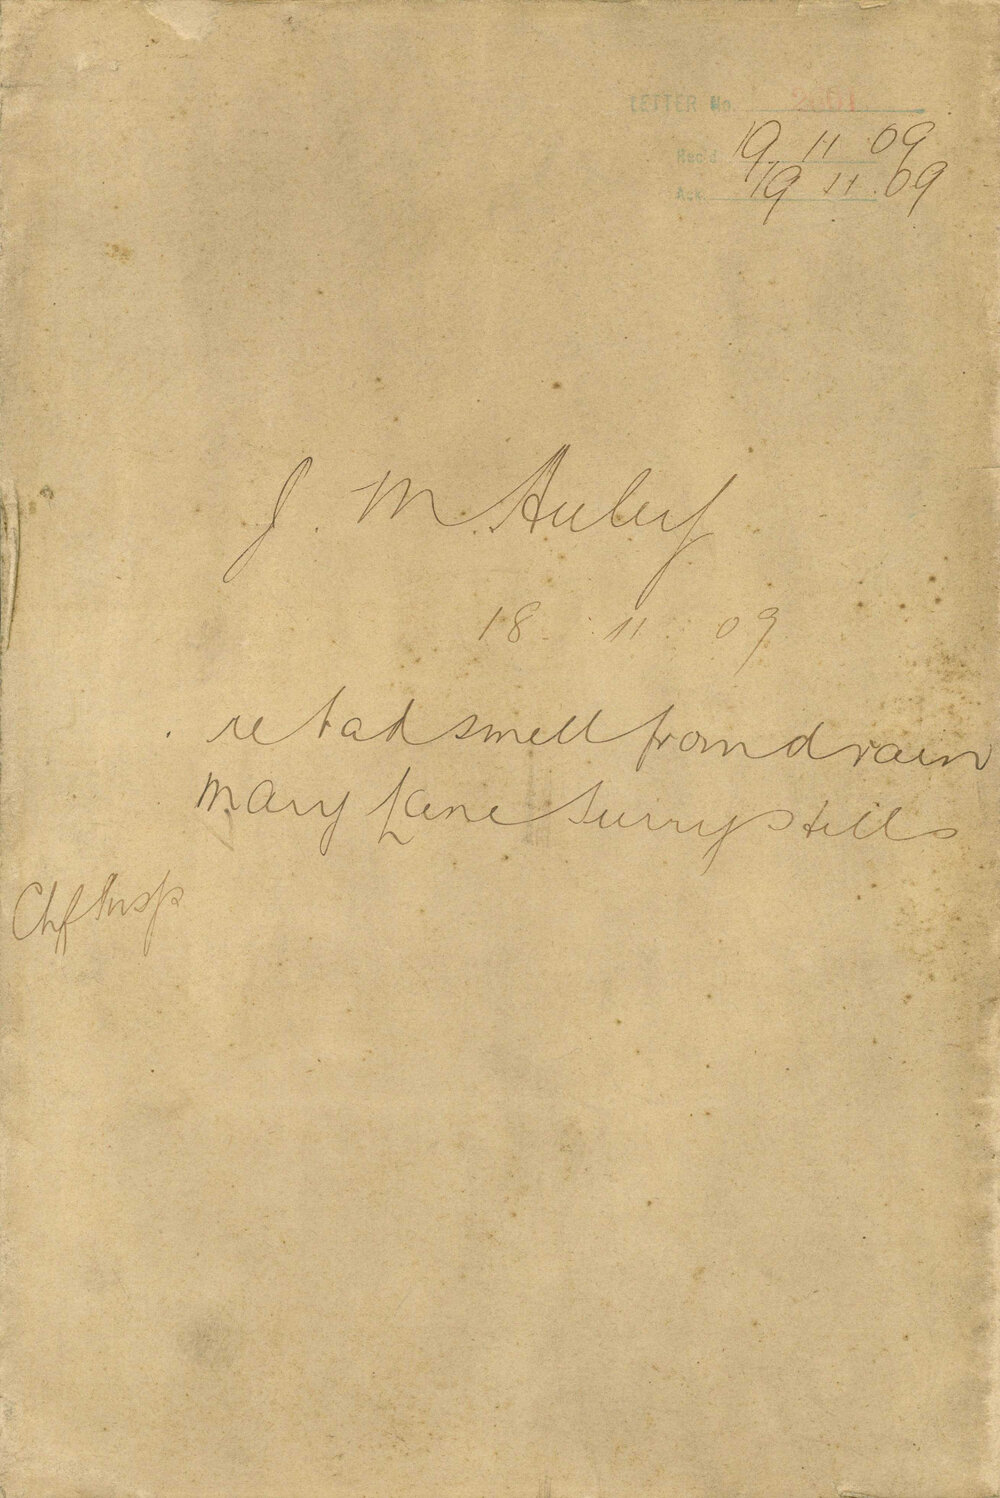 LETTER No. 2661
Rec'd 19 11 09
Ack. 19 11 09
J. McAuley
18 11 09
re bad smell from drain
Mary Lane Surry Hills
Chf Insp